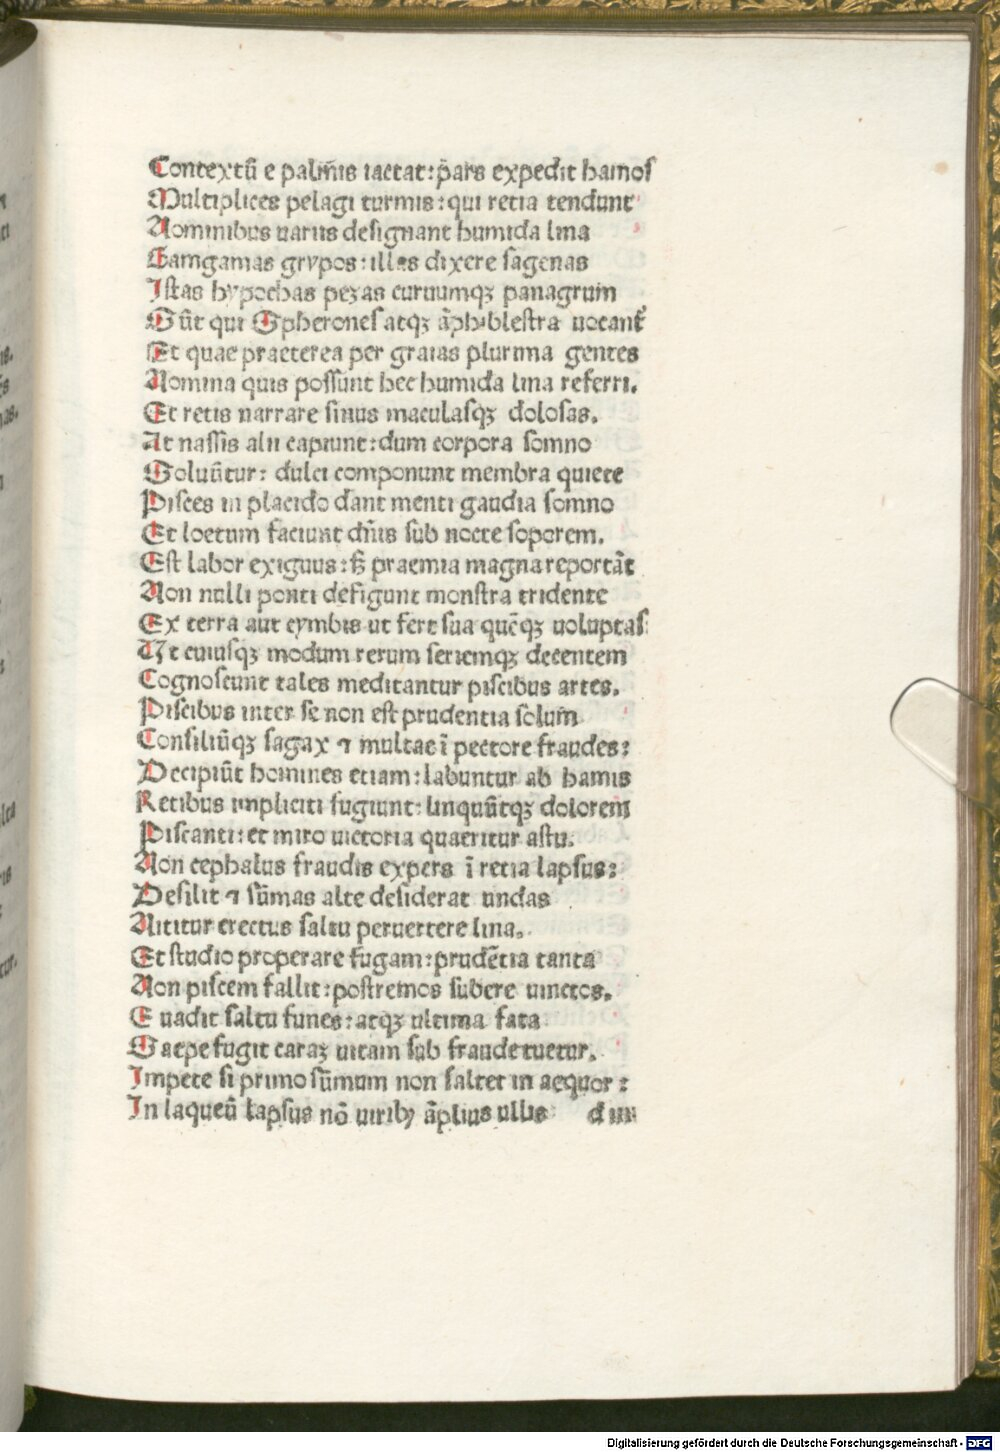 Contextū e palm̄is iactat: ꝑars expedit hamos
Multiplices pelagi turmis: qui retia tendunt
Nominibus uariis designant humida lina
Gamgamas grypos: illas dixere sagenas
Istas hypochas pezas curuumqꝫ panagrum
Sūt qui Spherones atqꝫ āphiblestra uocant
Et quae praeterea per graias plurima gentes
Nomina quis possunt hec humida lina referri.
Et retis narrare sinus maculasqꝫ dolosas.
At nassis alii capiunt: dum corpora somno
Soluūtur: dulci componunt membra quiete
Pisces in placido dant menti gaudia somno
Et loetum faciunt dm̄is sub nocte soporem.
Est labor exiguus: sꝫ praemia magna reportāt
Non nulli ponti defigunt monstra tridente
Ex terra aut cymbis ut fert sua quēqꝫ uoluptas:
Vt cuiusqꝫ modum rerum seriemqꝫ decentem
Cognoscunt tales meditantur piscibus artes.
Piscibus inter se non est prudentia solum
Consiliūqꝫ sagax ⁊ multae ī pectore fraudes:
Decipiūt homines etiam: labuntur ab hamis
Retibus impliciti fugiunt: linquūtqꝫ dolorem
Piscanti: et miro uictoria quaeritur astu.
Non cephalus fraudis expers ī retia lapsus:
Desilit ⁊ sūmas alte desiderat undas
Nititur erectus saltu peruertere lina.
Et studio properare fugam: prudētia tanta
Non piscem fallit: postremos subere uinctos.
Euadit saltu funes: atqꝫ ultima fata
Saepe fugit caraꝫ uitam sub fraude tuetur.
Impete si primo sūmum non saltet in aequor:
In laqueū lapsus nō uiribꝫ āplius ullis d iiii
Digitalisierung gefördert durch die Deutsche Forschungsgemeinschaft - DFG